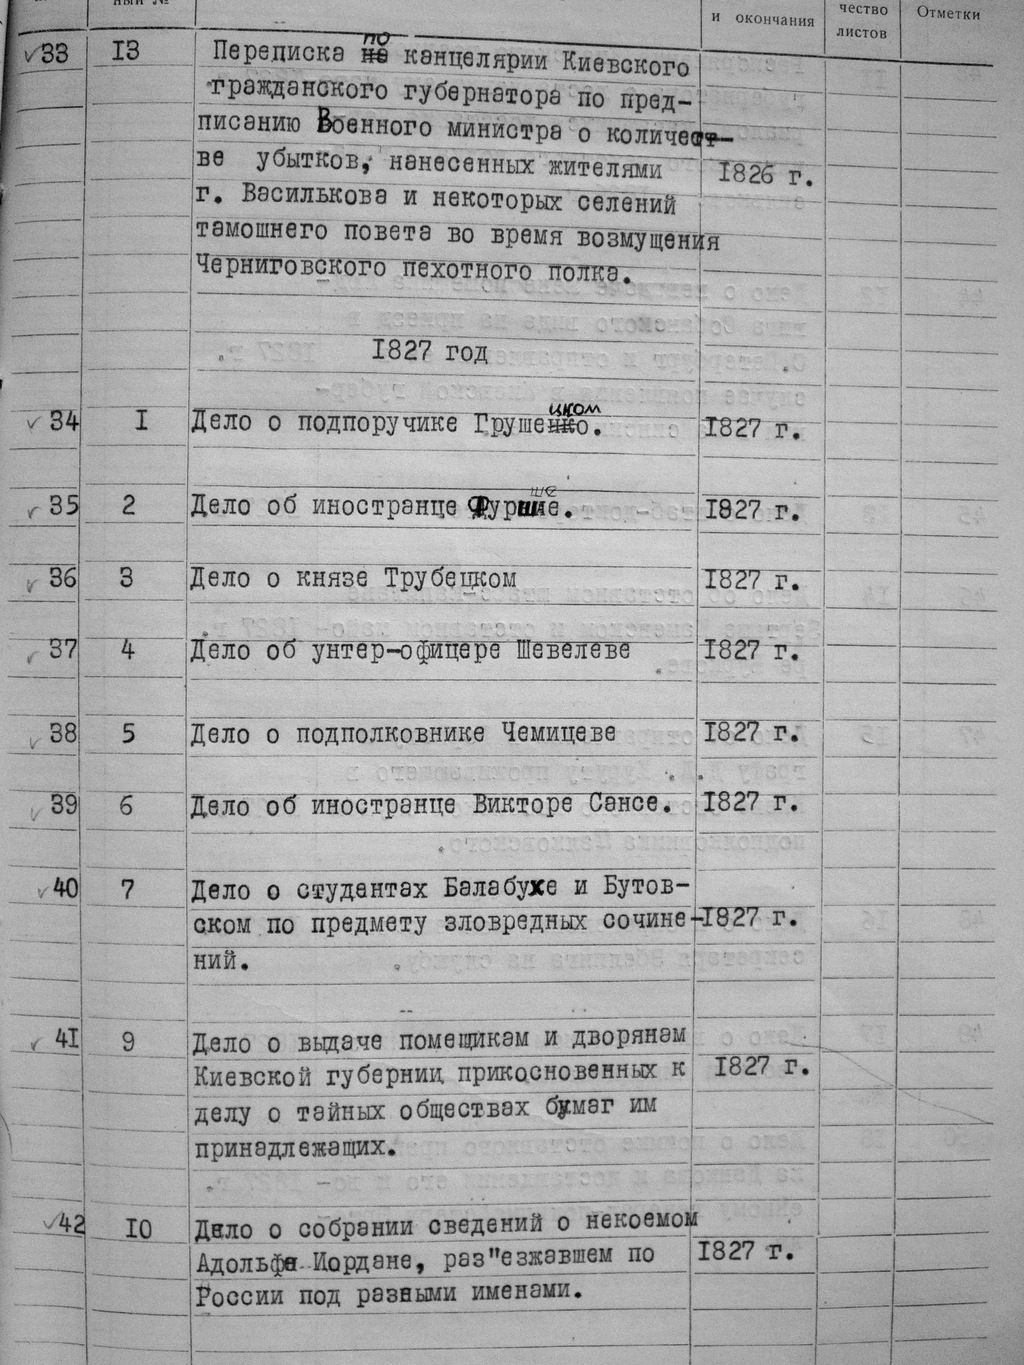 ный №
и окончания
чество
листов
Отметки
33 13 Переписка по канцелярии Киевского
гражданского губернатора по пред-
писанию Военного министра о количест-
ве убытков, нанесенных жителями 1826 г.
г. Василькова и некоторых селений
тамошнего повета во время возмущения
Черниговского пехотного полка.
1827 год
34 1 Дело о подпоручике Грушецком. 1827 г.
35 2 Дело об иностранце Фурше. 1827 г.
36 3 Дело о князе Трубецком 1827 г.
37 4 Дело об унтер-офицере Шевелеве 1827 г.
38 5 Дело о подполковнике Чемицеве 1827 г.
39 6 Дело об иностранце Викторе Сансе. 1827 г.
40 7 Дело о студентах Балабухе и Бутов-
ском по предмету зловредных сочине- 1827 г.
ний.
41 9 Дело о выдаче помещикам и дворянам
Киевской губернии, прикосновенных к 1827 г.
делу о тайных обществах бумаг им
принадлежащих.
42 10 Дело о собрании сведений о некоемом
Адольфе Иордане, раз"езжавшем по 1827 г.
России под разными именами.